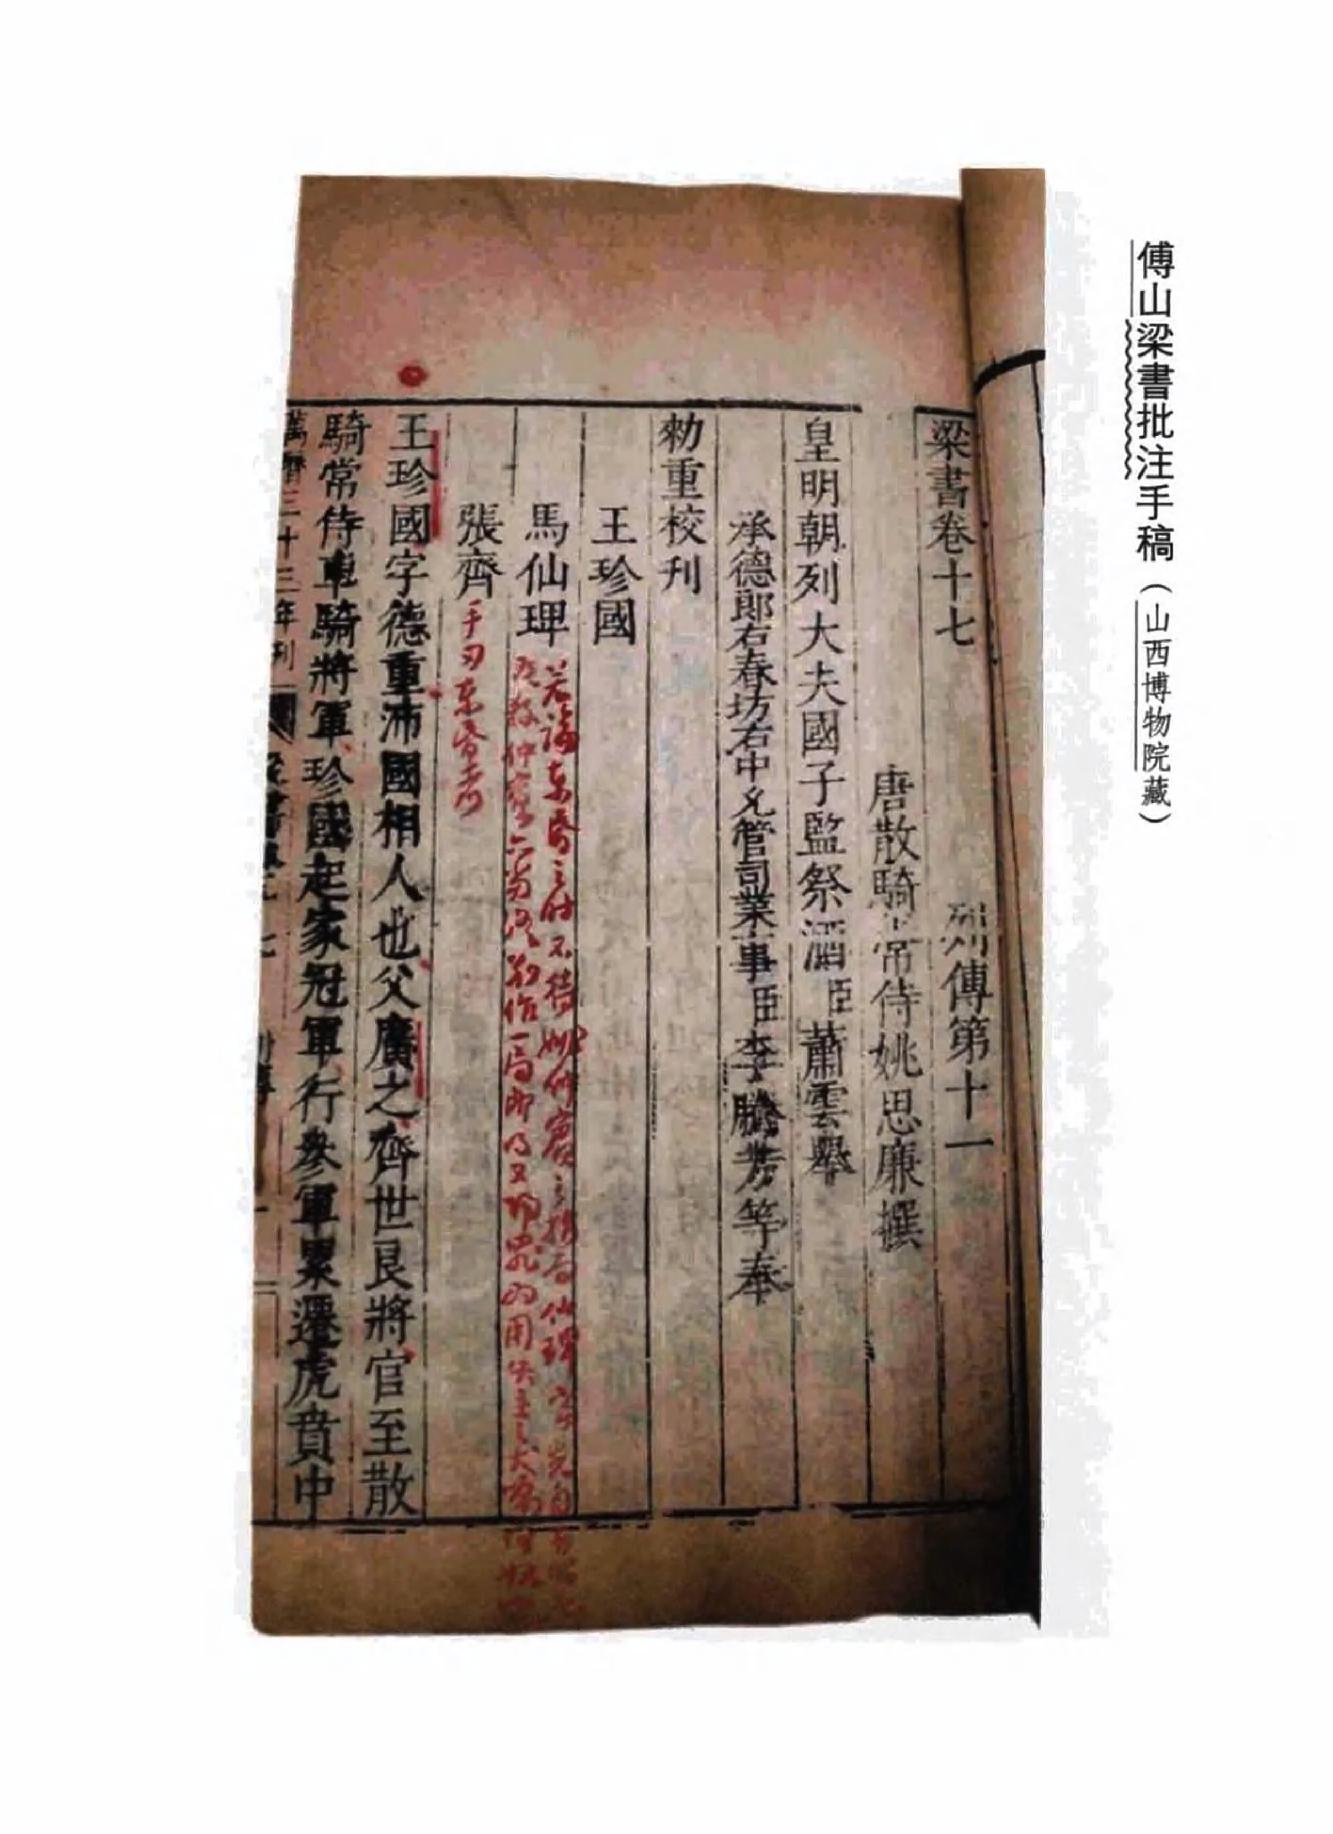 傅山梁書批注手稿（山西博物院藏）
梁書卷十七 列傳第十一
唐散騎常侍姚思廉撰
皇明朝列大夫國子監祭酒臣蕭雲舉
承德郎右春坊右中允管司業事臣李騰芳等奉
勑重校刊
王珍國
馬仙琕
張齊 手刃東昏者
王珍國字德重沛國相人也父廣之齊世良將官至散
騎常侍車騎將軍珍國起家冠軍行參軍累遷虎賁中
萬曆三十三年刊